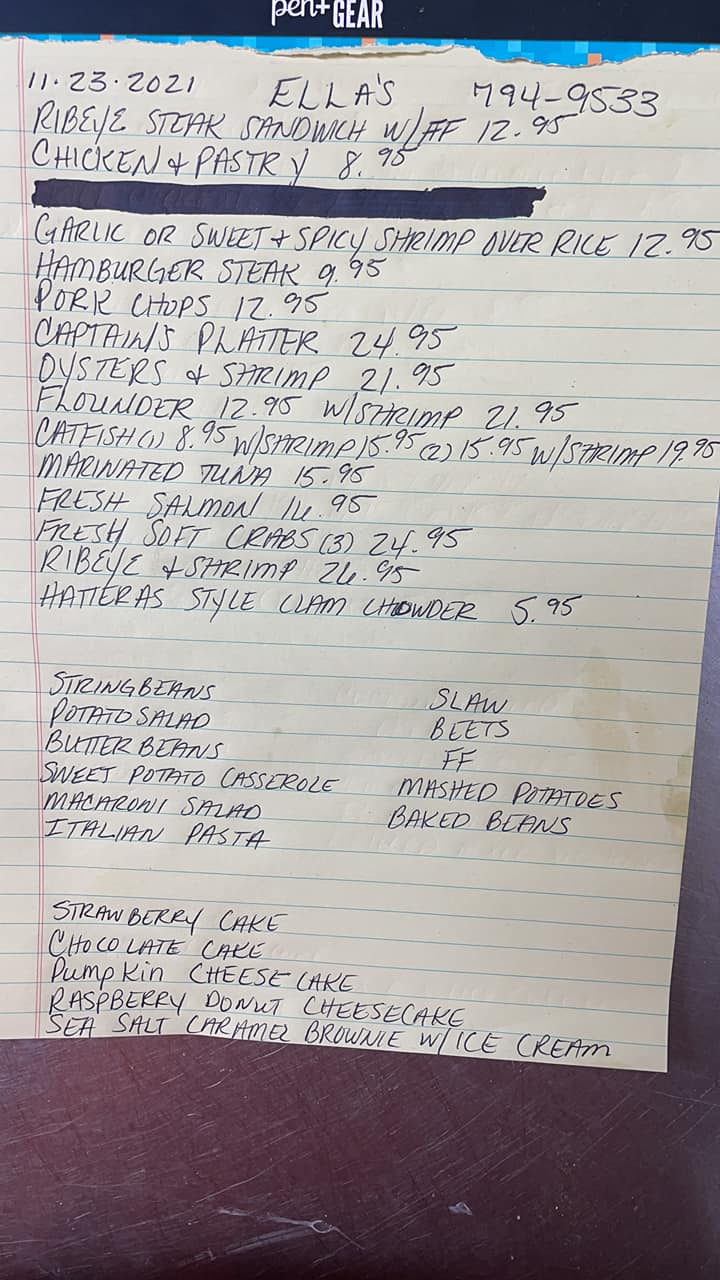 pen+GEAR
11.23.2021 ELLA'S 794-9533
RIBEYE STEAK SANDWICH W/FF 12.95
CHICKEN & PASTRY 8.95
GARLIC OR SWEET & SPICY SHRIMP OVER RICE 12.95
HAMBURGER STEAK 9.95
PORK CHOPS 12.95
CAPTAIN'S PLATTER 24.95
OYSTERS & SHRIMP 21.95
FLOUNDER 12.95 W/SHRIMP 21.95
CATFISH (1) 8.95 W/SHRIMP 15.95 (2) 15.95 W/SHRIMP 19.95
MARINATED TUNA 15.95
FRESH SALMON 16.95
FRESH SOFT CRABS (3) 24.95
RIBEYE & SHRIMP 26.95
HATTERAS STYLE CLAM CHOWDER 5.95
STRINGBEANS SLAW
POTATO SALAD BEETS
BUTTER BEANS FF
SWEET POTATO CASSEROLE MASHED POTATOES
MACARONI SALAD BAKED BEANS
ITALIAN PASTA
STRAWBERRY CAKE
CHOCOLATE CAKE
PumpKin CHEESECAKE
RASPBERRY DONUT CHEESECAKE
SEA SALT CARAMEL BROWNIE W/ICE CREAM